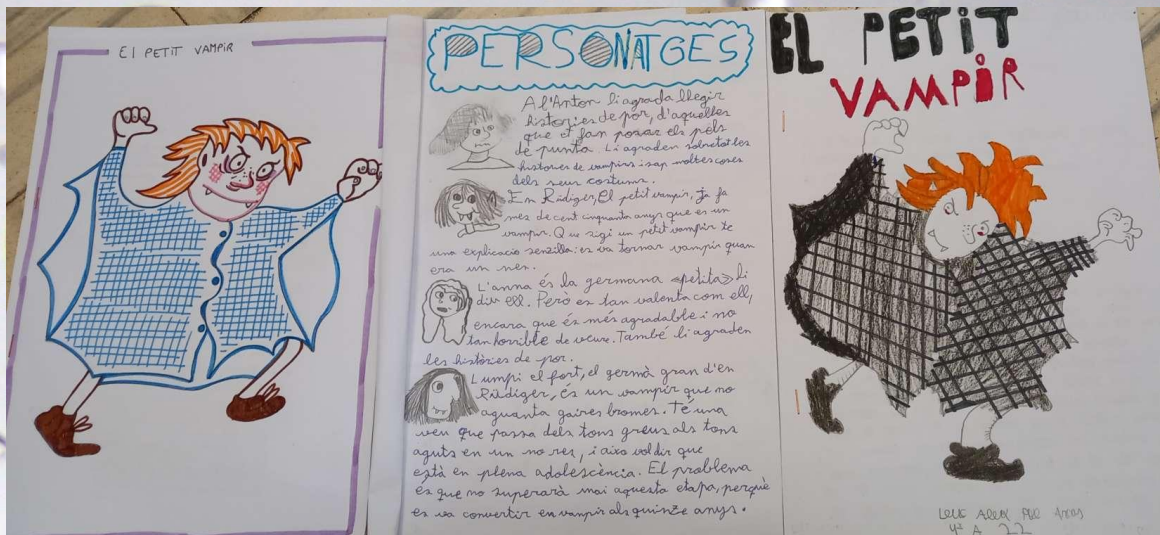 El PETIT VAMPIR
PERSONATGES
A l'Anton li agrada llegir
històries de por, d'aquelles
que et fan posar els pèls
de punta. Li agraden sobretot les
històries de vampirs i sap moltes coses
dels seus costums.
En Rüdiger, El petit vampir, ja fa
més de cent cinquanta anys que es un
vampir. Que sigi un petit vampir te
una explicació senzilla: es va tornar vampir quan
era un nen.
L'anna és la germana «petita» li
diu ell. Però es tan valenta com ell,
encara que és més agradable i no
tan horrible de veure. També li agraden
les històries de por.
Lumpi el fort, el germà gran d'en
Rüdiger, és un vampir que no
aguanta gaires bromes. Té una
veu que passa dels tons greus als tons
aguts en un no res, i aixo vol dir que
està en plena adolescència. El problema
es que no superarà mai aquesta etapa, perquè
es va convertir en vampir als quinze anys.
EL PETIT
VAMPIR
4t A 22